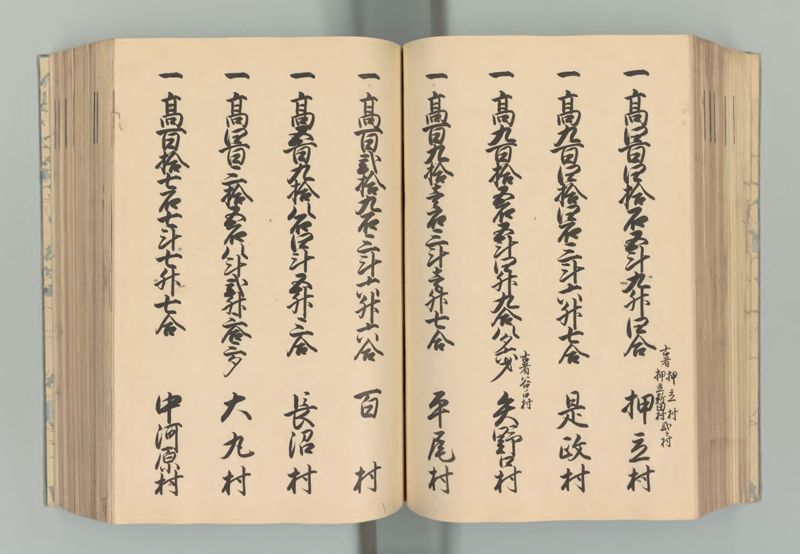 一 高四百四拾石五斗九升四合 押立村
古者 押立村
押立新田村 弐ヶ村
一 高九百四拾四石三斗六升七合 是政村
一 高九百拾五石五斗四升九合八夕 矢野口村
古者谷口村
一 高百九拾壱石三斗壱升七合 平尾村
一 高百弐拾九石三斗六升六合 百村
一 高五百九拾八石四斗五升三合 長沼村
一 高四百三拾五石八斗弐升 大丸村
一 高百拾七石七斗七升七合 中河原村